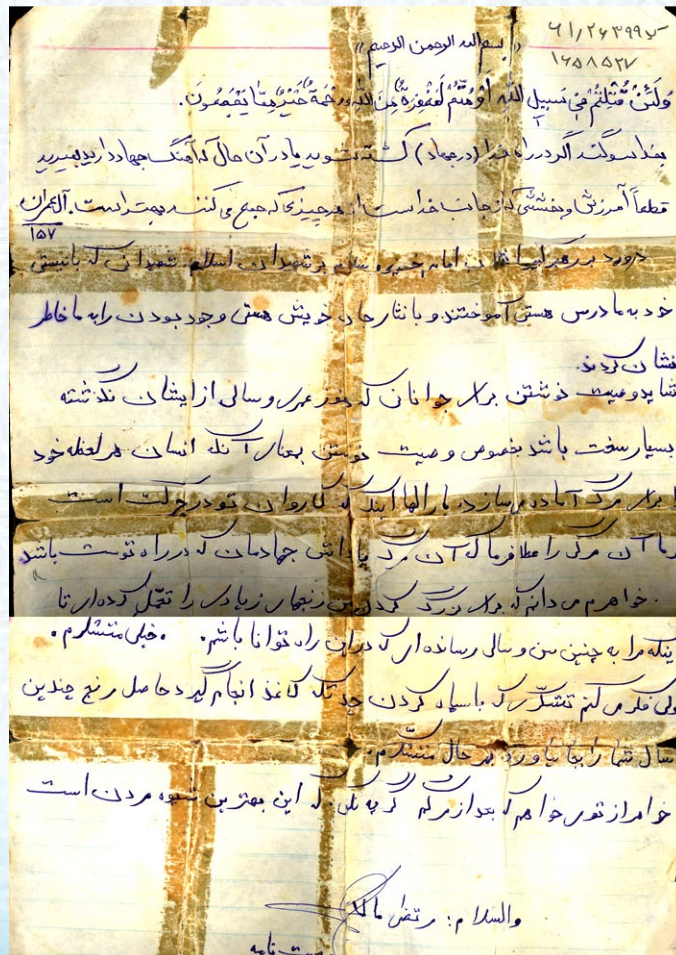 ۶۱/۲۶۳۹۹
۱۶۵۸۵۲۷
«بسم الله الرحمن الرحیم»
وَلَئِن قُتِلتُم فی سَبیلِ اللّهِ اَو مُتُّم لَمَغفِرَةٌ مِنَ اللّهِ وَ رَحمَةٌ خَیرٌ مِمّا یَجمَعُونَ.
بخدا سوگند اگر در راه خدا (در جهاد) کشته شوید یا در آن حال که آهنگ جهاد دارید بمیرید
قطعاً آمرزش و بخششی که از جانب خداست از هر چیزی که جمع می کنند بهتر است. آل عمران
۱۵۷
درود بر رهبر ایران امام خمینی و سلام بر شهیدان اسلام. شهیدانی که با نیستی
خود به ما درس هستی آموختند و با نثار جان خویش هستی و وجود بودن را به ما خاطر
نشان کردند.
شاید وصیت نوشتن برای جوانانی که هنوز عمری و سالی از ایشان نگذشته
بسیار سخت باشد بخصوص وصیت نوشتن بمعنای آنکه انسان هر لحظه خود
را برای مرگ آماده می سازد. بارالها اینک که کاروان تو در حرکت است
بما آن مرگی را عطا فرما که آن مرگ پاداش جهادمان که در راه توست باشد
خواهرم می دانم که برای بزرگ کردن من رنجهای زیادی را تحمل کرده ای تا
اینکه مرا به چنین سن و سالی رسانده ای که در این راه توانا باشم. خیلی متشکرم.
ولی فکر می کنم تشکری که با سیاه کردن چند تکه کاغذ انجام گیرد حاصل رنج چندین
سال شما را بجا نیاورد بهر حال متشکرم.
خواهر از تو می خواهم که بعد از مرگم گریه نکنی که این بهترین شیوه مردن است
والسلام: مرتضی
وصیت نامه